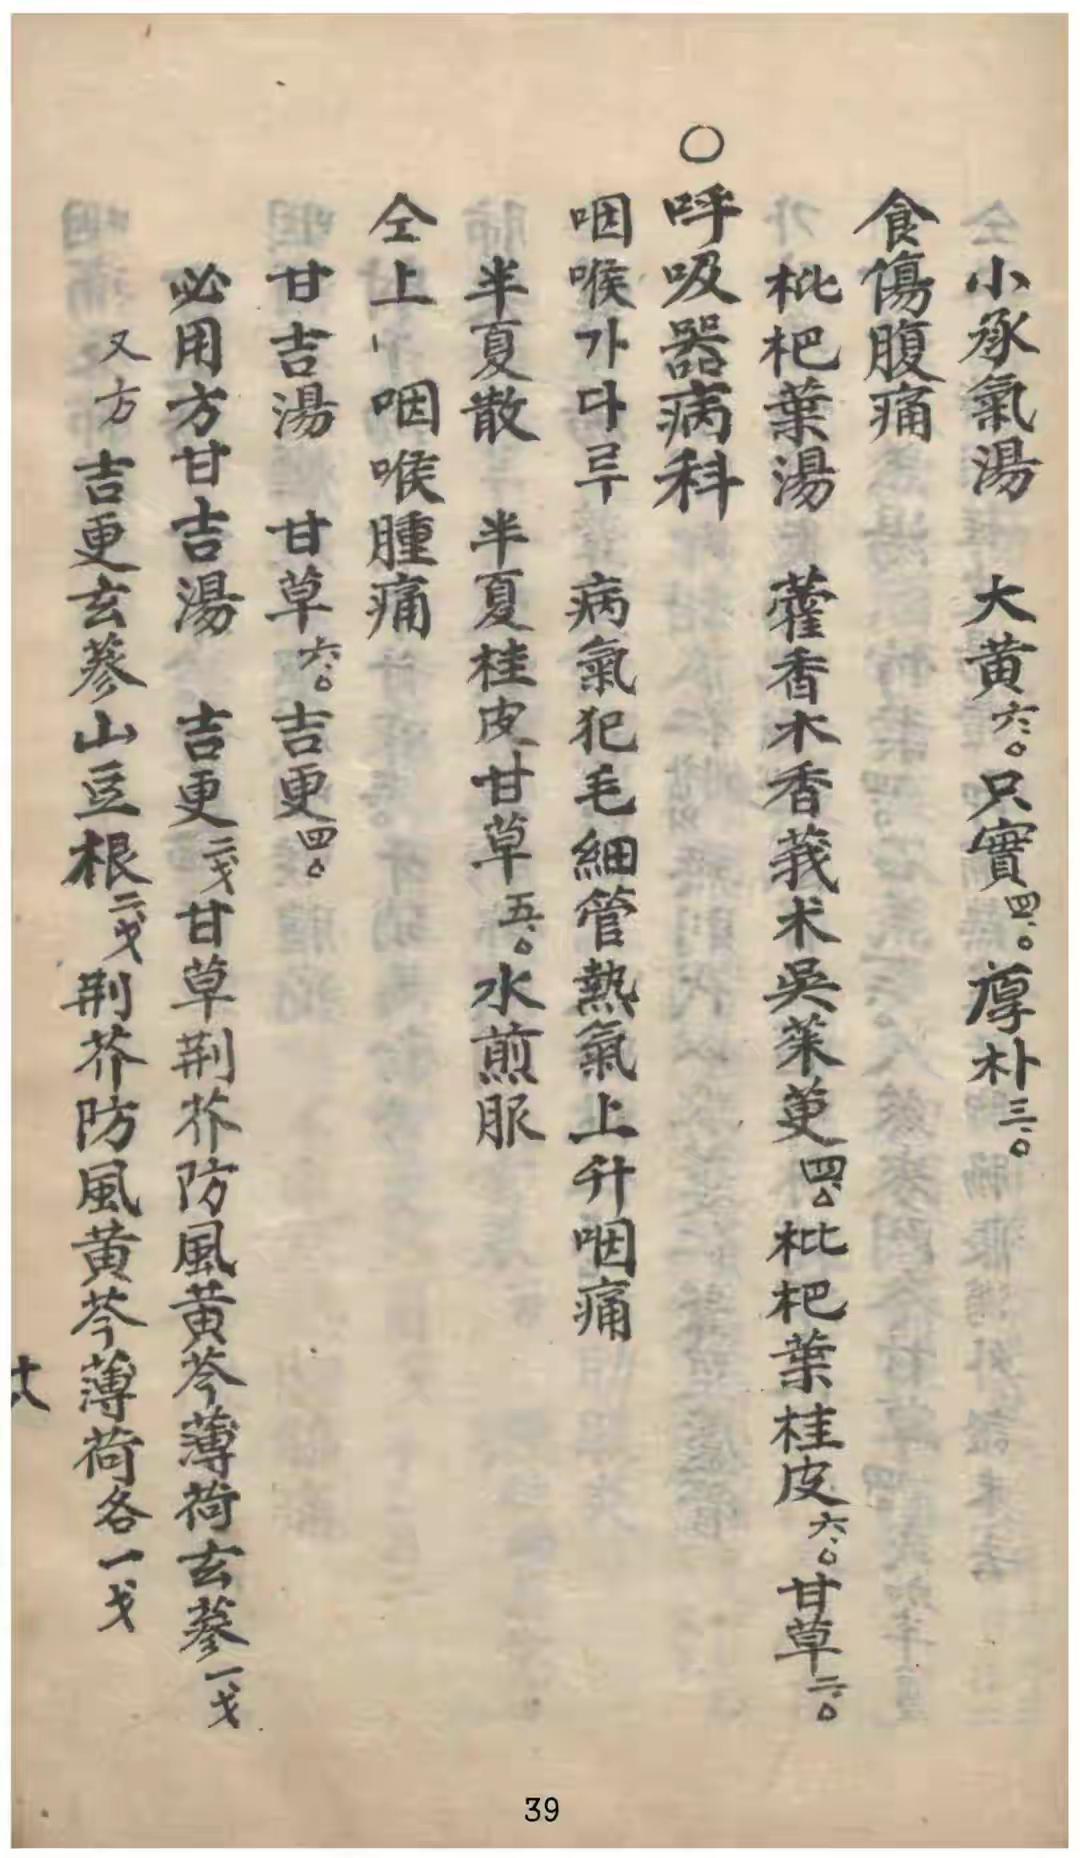 小承氣湯 大黄六.〇只實四.〇厚朴三.〇
食傷腹痛
枇杷葉湯 藿香木香莪术吳茱萸四.〇枇杷葉桂皮六.〇甘草二.〇
〇呼吸器病科
咽喉가다루 病氣犯毛細管熱氣上升咽痛
半夏散 半夏桂皮甘草五.〇水煎服
仝上 咽喉腫痛
甘吉湯 甘草六.〇吉更四.〇
必用方甘吉湯 吉更二戋甘草荆芥防風黄芩薄荷玄蔘一戋
又方 吉更玄蔘山豆根二戋荆芥防風黄芩薄荷各一戋
39